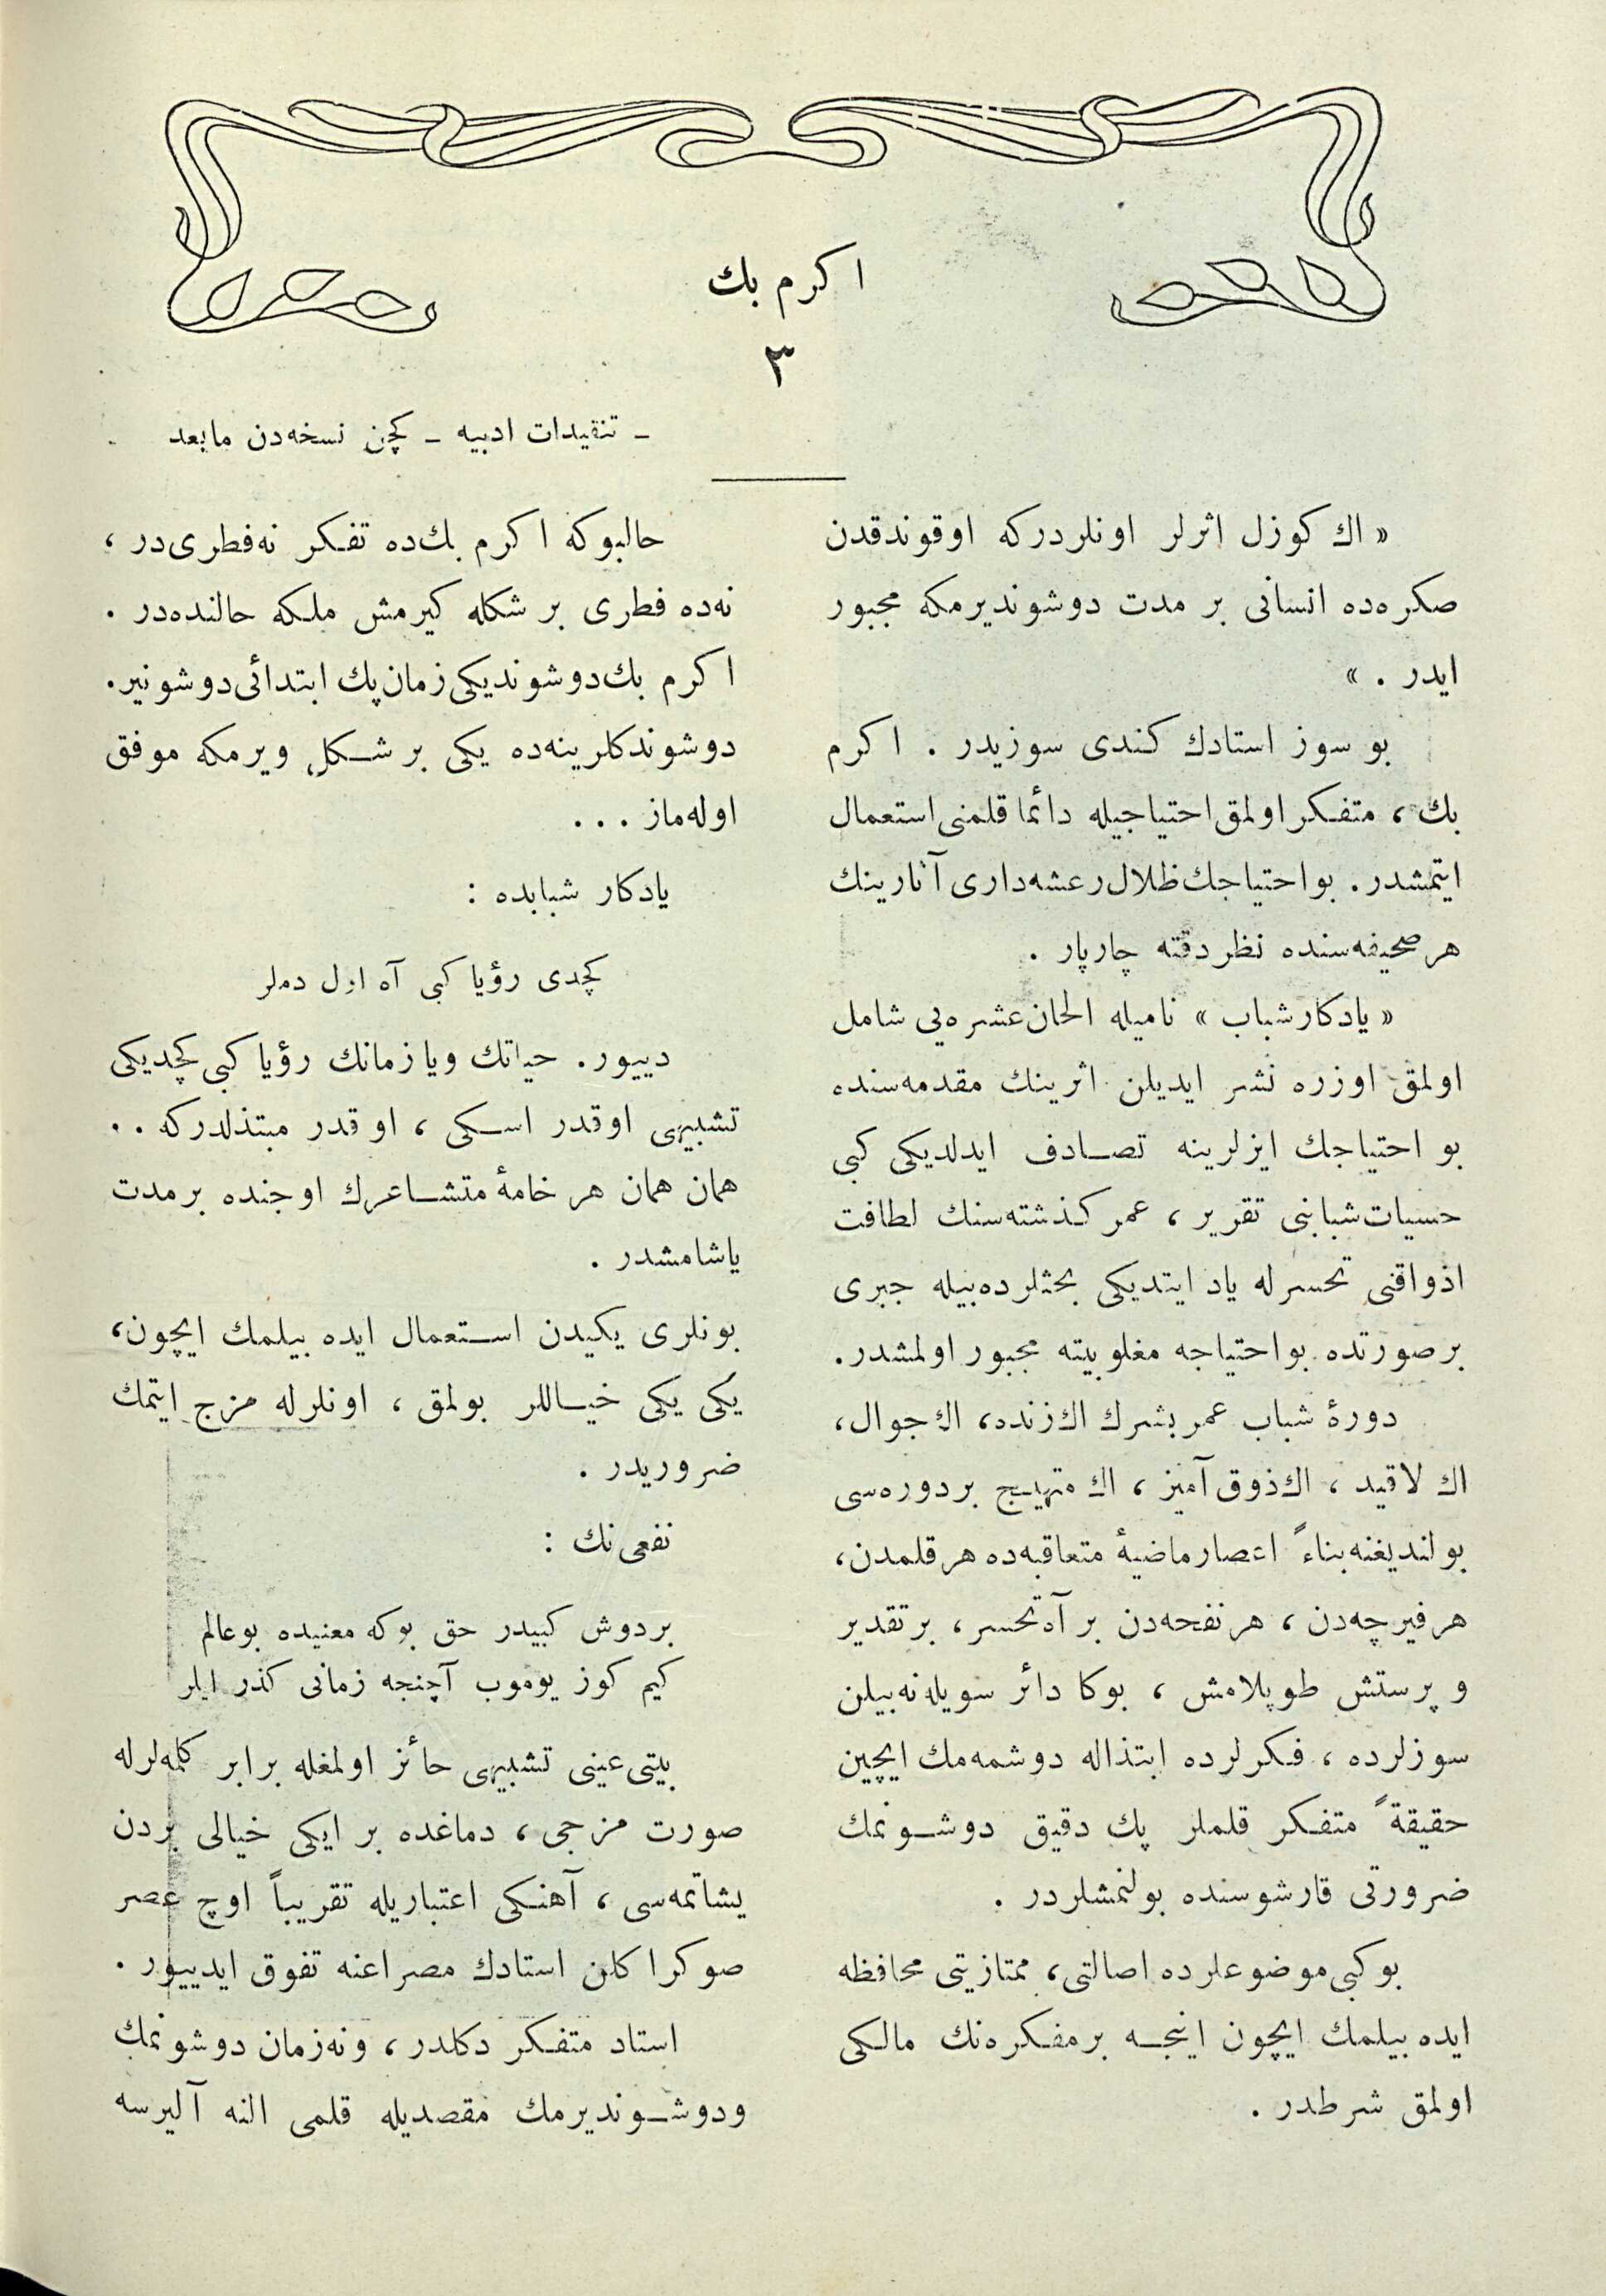 اكرم بك
٣
ـ تنقيدات ادبيه ـ كچن نسخه‌دن مابعد
« اك كوزل اثرلر اونلردركه اوقوندقدن
صكره‌ده انسانى بر مدت دوشونديرمكه مجبور
ايدر . »
بو سوز استادك كندى سوزيدر . اكرم
بك ، متفكر اولمق احتياجيله دائما قلمنى استعمال
ايتمشدر . بو احتياجك ظلال رعشه‌دارى آثارينك
هر صحيفه‌سنده نظر دقته چارپار .
« يادكار شباب » ناميله الحان عشره‌يى شامل
اولمق اوزره نشر ايديلن اثرينك مقدمه‌سنده
بو احتياجك ايزلرينه تصادف ايدلديكى كبى
حسيات شبابنى تقرير ، عمر كذشته‌سنك لطافت
اذواقنى تحسرله ياد ايتديكى بحثلرده‌بيله جبرى
بر صورتده بو احتياجه مغلوبيته مجبور اولمشدر .
دورۀ شباب عمر بشرك اك زنده ، اك جوال ،
اك لاقيد ، اك ذوق آميز ، اك متهيج بر دوره‌سى
بولنديغنه بناءً اعصار ماضيۀ متعاقبه‌ده هر قلمدن ،
هر فيرچه‌دن ، هر نفحه‌دن بر آه تحسر ، بر تقدير
و پرستش طوپلامش ، بوكا دائر سويله‌نه‌بيلن
سوزلرده ، فكرلرده ابتذاله دوشمه‌مك ايچين
حقيقةً متفكر قلملر پك دقيق دوشونمك
ضرورتى قارشوسنده بولنمشلردر .
بوكبى موضوعلرده اصالتى ، ممتازيتى محافظه
ايده بيلمك ايچون اينجه بر مفكره‌نك مالكى
اولمق شرطدر .
حالبوكه اكرم بك‌ده تفكر نه‌فطرى‌در ،
نه‌ده فطرى بر شكله كيرمش ملكه حالنده‌در .
اكرم بك دوشونديكى زمان پك ابتدائى دوشونير .
دوشوندكلرينه‌ده يكى بر شكل ويرمكه موفق
اوله‌ماز . . .
يادكار شبابده :
كچدى رؤيا كبى آه اول دملر
دييور . حياتك ويا زمانك رؤيا كبى كچديكى
تشبيهى اوقدر اسكى ، اوقدر مبتذلدركه . .
همان همان هر خامۀ متشاعرك اوجنده بر مدت
ياشامشدر .
بونلرى يكيدن استعمال ايده بيلمك ايچون ،
يكى يكى خياللر بولمق ، اونلرله مزج ايتمك
ضروريدر .
نفعى‌نك :
بر دوش كبيدر حق بوكه معنيده بو عالم
كيم كوز يوموب آچنجه زمانى كذر ايلر
بيتى عينى تشبيهى حائز اولمغله برابر كلمه‌لرله
صورت مزجى ، دماغده بر ايكى خيالى بردن
يشاتمه‌سى ، آهنكى اعتباريله تقريباً اوچ عصر
صوكرا كلن استادك مصراعنه تفوق ايدييور .
استاد متفكر دكلدر ، ونه‌زمان دوشونمك
ودوشونديرمك مقصديله قلمى النه آليرسه